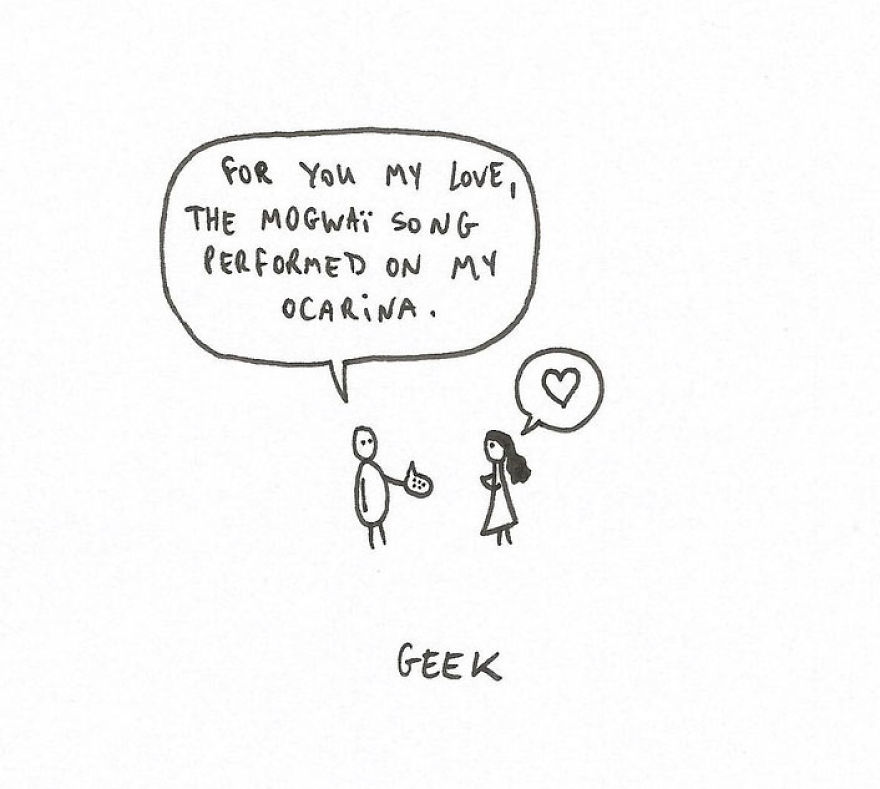 FOR YOU MY LOVE,
THE MOGWAÏ SONG
PERFORMED ON MY
OCARINA.
GEEK